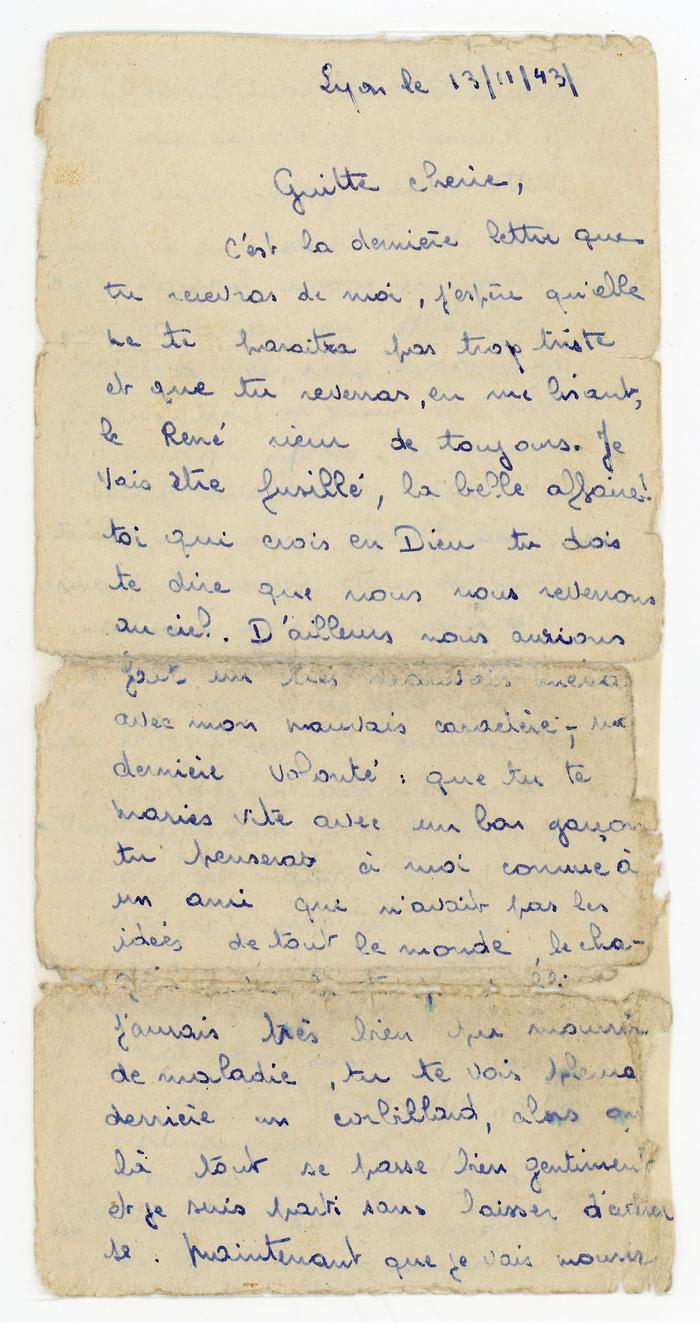 Lyon le 13/11/43/
Guitte cherie,
c'est la dernière lettre que
tu recevras de moi, j'espère qu'elle
ne te paraitra pas trop triste
et que tu reverras, en me lisant,
le René rieur de toujours. Je
vais être fusillé, la belle affaire!
toi qui crois en Dieu tu dois
te dire que nous nous reverrons
au ciel. D'ailleurs nous aurions
fait un très mauvais
avec mon mauvais caractère; ma
dernière volonté : que tu te
maries vite avec un bon garçon
tu penseras à moi comme à
un ami qui n'avait pas les
idées de tout le monde, le cha-
J'aurais très bien pu mourir
de maladie, tu te vois
derrière un corbillard, alors
là tout se passe bien gentiment
et je suis parti sans laisser d'adres
se. Maintenant que je vais mourir